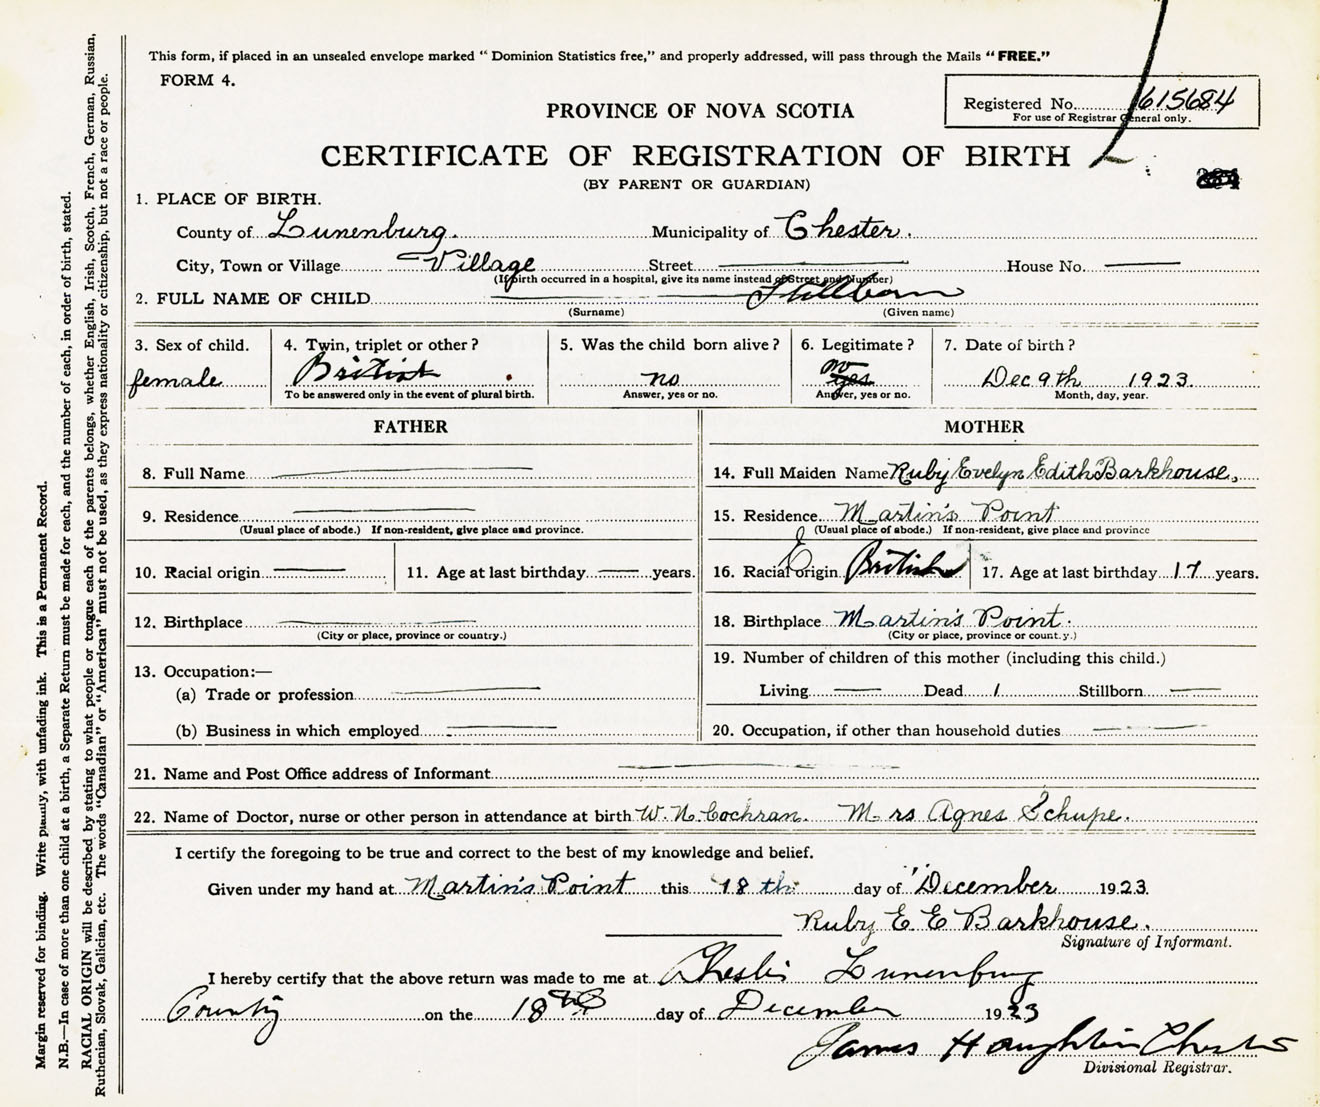 This form, if placed in an unsealed envelope marked “ Dominion Statistics free,” and properly addressed, will pass through the Mails “FREE.”
FORM 4.
Registered No. 615684
For use of Registrar General only.
PROVINCE OF NOVA SCOTIA
CERTIFICATE OF REGISTRATION OF BIRTH
(BY PARENT OR GUARDIAN)
1. PLACE OF BIRTH.
County of Lunenburg. Municipality of Chester.
City, Town or Village Village Street House No.
(If birth occurred in a hospital, give its name instead of Street and Number)
2. FULL NAME OF CHILD Stillborn
(Surname) (Given name)
3. Sex of child. 4. Twin, triplet or other? 5. Was the child born alive? 6. Legitimate? 7. Date of birth?
female British no no yes Dec 9th 1923.
To be answered only in the event of plural birth. Answer, yes or no. Answer, yes or no. Month, day, year.
FATHER MOTHER
8. Full Name 14. Full Maiden Name Ruby Evelyn Edith Barkhouse.
9. Residence 15. Residence Martin's Point
(Usual place of abode.) If non-resident, give place and province. (Usual place of abode.) If non-resident, give place and province
10. Racial origin 11. Age at last birthday years. 16. Racial origin E British 17. Age at last birthday 17 years.
12. Birthplace 18. Birthplace Martin's Point.
(City or place, province or country.) (City or place, province or count.y.)
19. Number of children of this mother (including this child.)
13. Occupation:—
(a) Trade or profession Living Dead 1 Stillborn
(b) Business in which employed 20. Occupation, if other than household duties
21. Name and Post Office address of Informant
22. Name of Doctor, nurse or other person in attendance at birth W. N. Cochran. Mrs Agnes Schupe.
I certify the foregoing to be true and correct to the best of my knowledge and belief.
Given under my hand at Martin's Point this 18th day of December 1923.
Ruby E E Barkhouse.
Signature of Informant.
I hereby certify that the above return was made to me at Chester Lunenburg
County on the 18th day of December 1923
James Houghton Chester
Divisional Registrar.
Margin reserved for binding. Write plainly, with unfading ink. This is a Permanent Record.
N.B.—In case of more than one child at a birth, a Separate Return must be made for each, and the number of each, in order of birth, stated.
RACIAL ORIGIN will be described by stating to what people or tongue each of the parents belongs, whether English, Irish, Scotch, French, German, Russian,
Ruthenian, Slovak, Galician, etc. The words “Canadian” or “American” must not be used, as they express nationality or citizenship, but not a race or people.